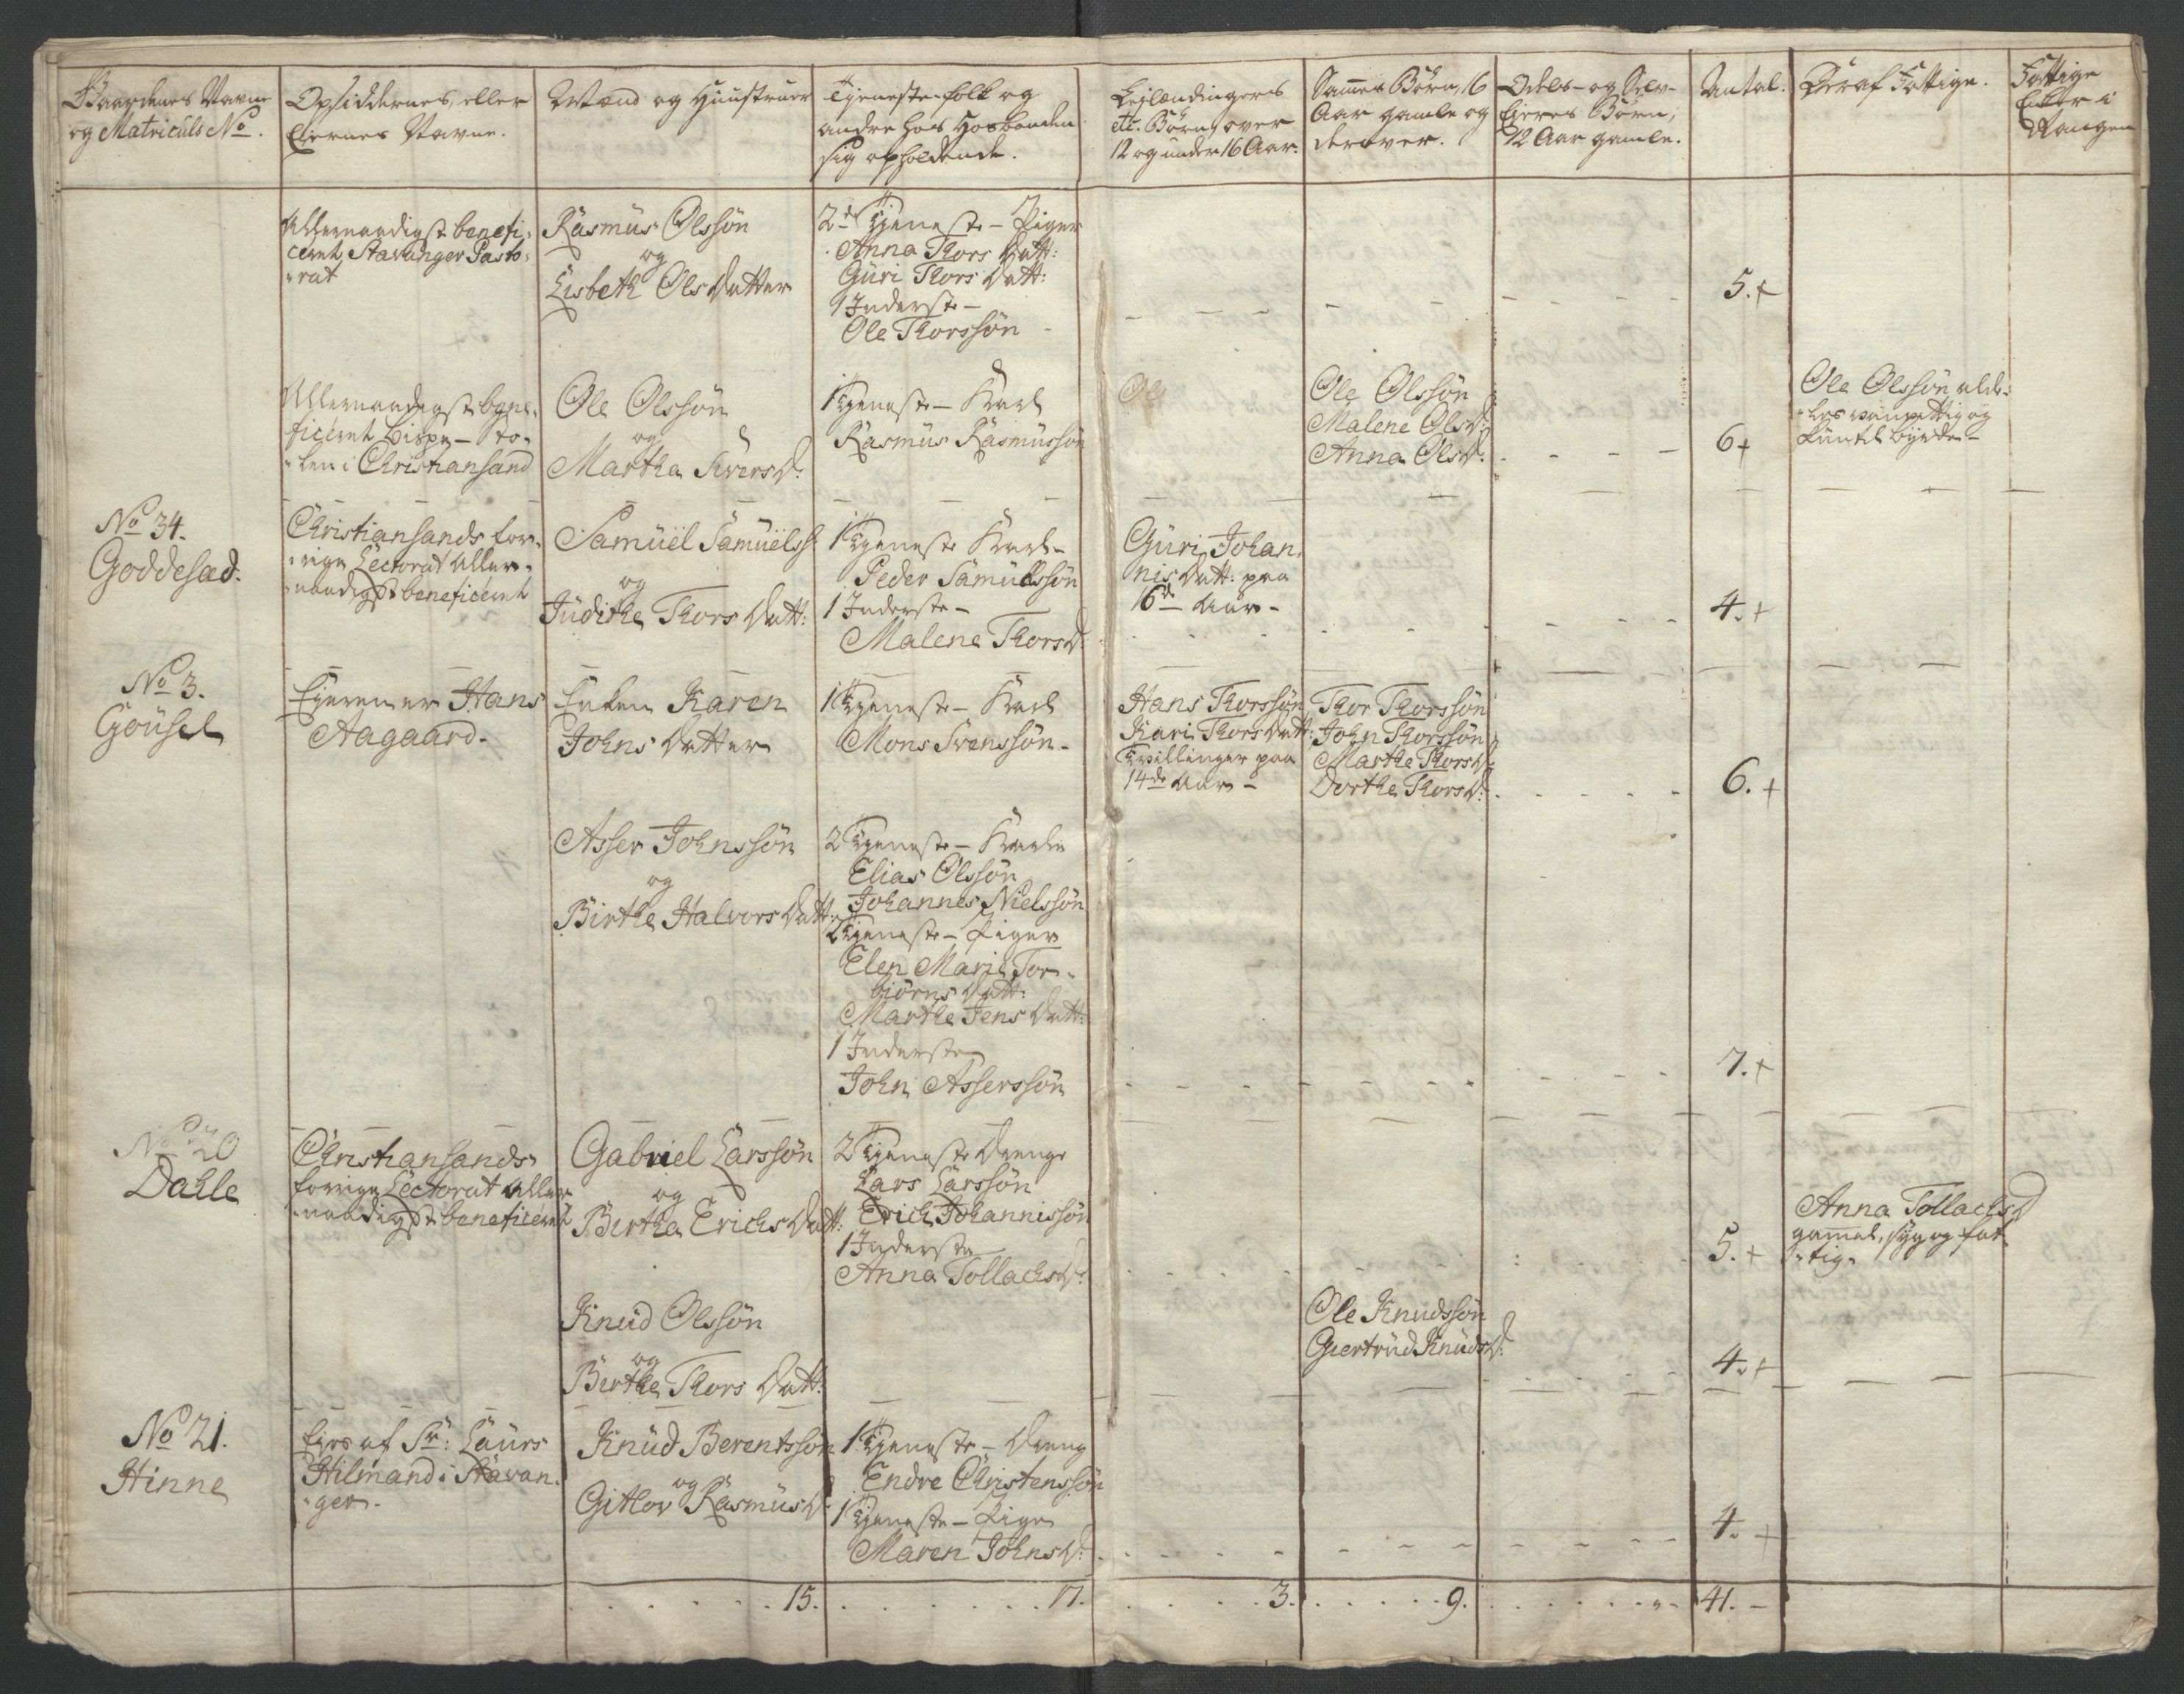 Gaardenes Navne
og Matriculs No.
Opsiddernes, eller
Ejernes Navne.
Mænd og Huustruer
Tjeneste-folk og
andre hos Hosbonden
sig opholdende.
Lejlændingers
etc. Børn, over
12 og under 16 Aar.
Samme Børn, 16
Aar gamle og
derover.
Odels- og Selv-
Ejeres Børn,
12 Aar gamle.
Antal.
Deraf Fattige.
Fattige
Eller i
Rangen
Allernaadigst benefi-
ceret Stavanger Pasto-
rat
Rasmus Olssøn
og
Lisbeth Ols Datter
2de Tjeneste-Piger
Anna Thors Datt:
Guri Thors Datt:
1 Inderste-
Ole Thorssøn
5.+
Allernaadigst bene-
ficeret Bispe-Sto-
len i Christiansand
Ole Olssøn
og
Martha SiversD:
1 Tjeneste-Karl
Rasmus Rasmussøn
Ole
Ole Olssøn
Malene OlsD:
Anna OlsD:
6+
Ole Olssøn
No 34.
Goddesæd.
Christiansands for-
rige Lectorat Aller-
naadigst beneficeret
Samuel Samuelss:
og
Judithe Thors Datt:
1 Tjeneste Karl-
Peder Samuelssøn
1 Inderste-
Malene ThorsD:
Guri Johan-
nis Datt: paa
16de Aar-
4.+
No 3.
Gousel
Ejeren er Hans
Aagaard.
Enken Karen
Johns Datter
1 Tjeneste-Karl
Mons Svenssøn-
Hans Thorssøn
Kari Thors Datt:
Tvillinger paa
14de Aar-
Thor Thorssøn
John Thorssøn
Marthe ThorsD:
Dorthe ThorsD:
6.+
Asser Johnssøn
og
Birthe Halvors Datt:
2 Tjeneste-Karle
Elias Olssøn
Johannes Nielssøn
2 Tjeneste-Piger
Elen Marie Tor-
biörns Datt:
Marthe Jens Datt:
1 Inderste
John Asserssøn
7.+
No 20
Dahle
Christiansands
forrige Lectorat Aller-
naadigst beneficeret
Gabriel Larssøn
og
Birtha Erichs Datt:
2 Tjeneste Drenge
Lars Larssøn
Erich Johannissøn
1 Inderste
Anna TollachsD:
5.+
Anna TollachsD
gammel, syg og fat-
tig.
Knud Olssøn
og
Birthe Thors Datt:
Ole Knudssøn
Giertrud KnudsD:
4.+
No 21.
Hinne
Ejes af Sr: Laurs
Hilmand i Stavan-
ger.
Knud Berentssøn
og
Gitlov RasmusD:
1 Tjeneste-Dreng
Endre Christenssøn
1 Tjeneste-Pige
Maren JohnsD:
4.+
15.
17.
3.
9.
41.-